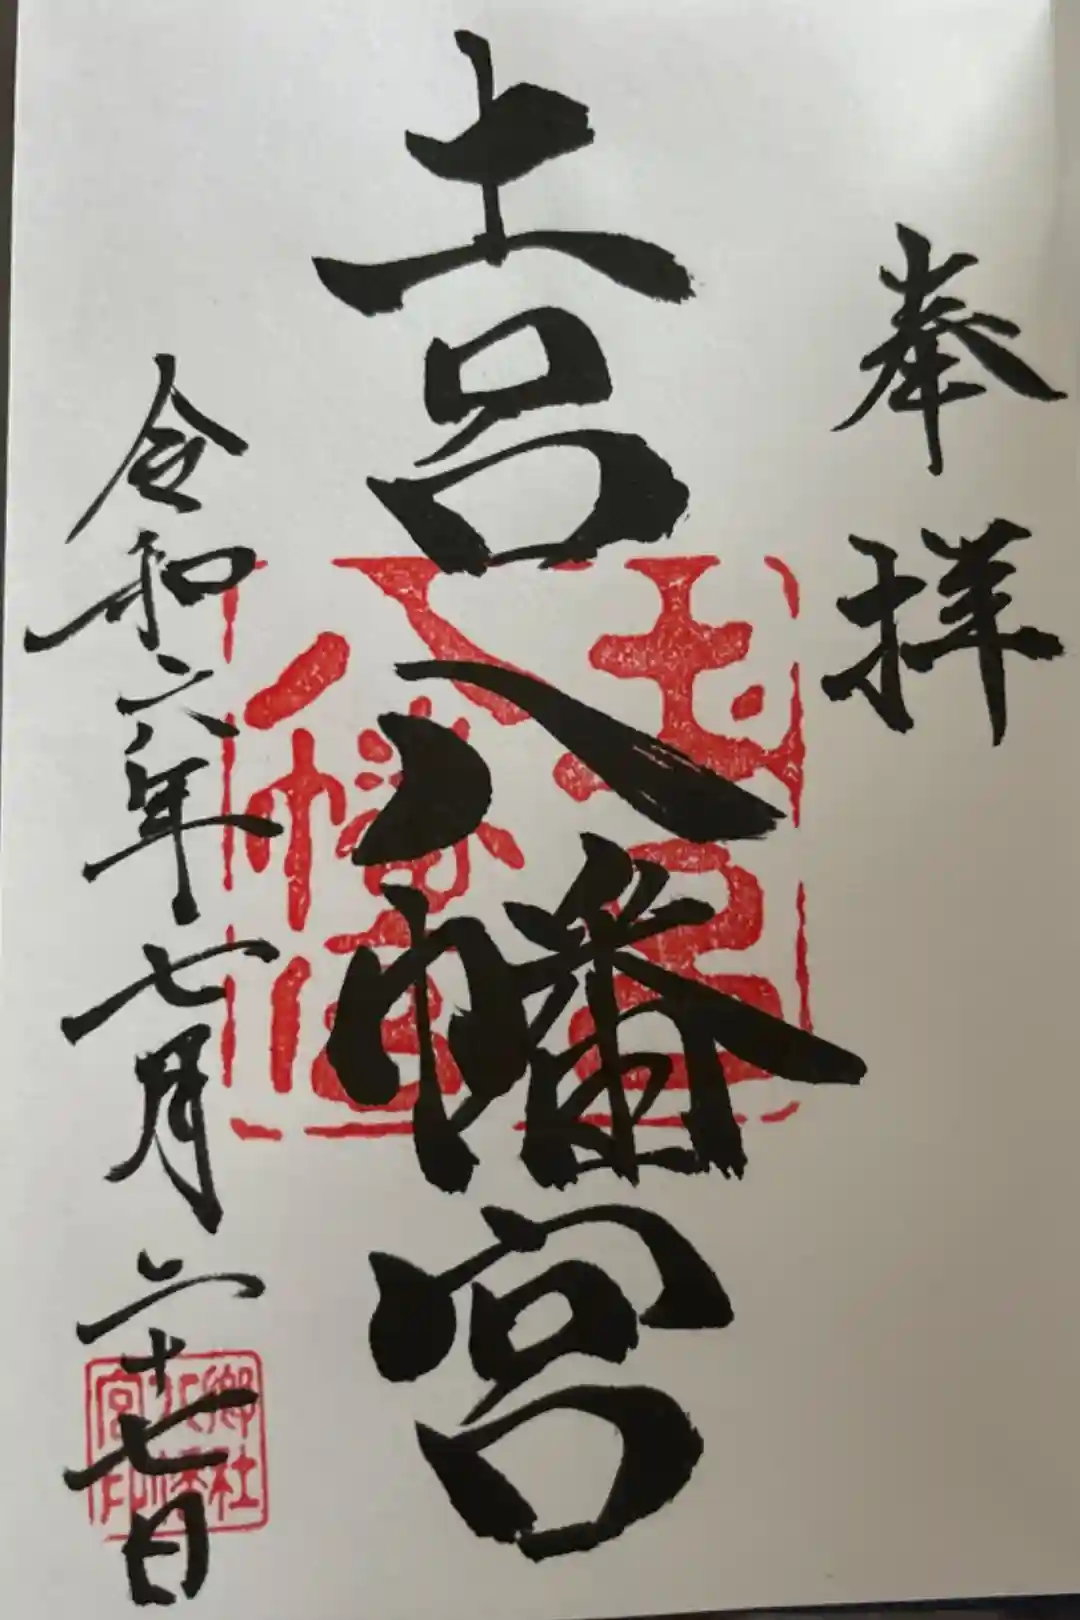 奉拝
土呂八幡宮
令和六年七月二十七日
土呂
郷社
八幡
宮印